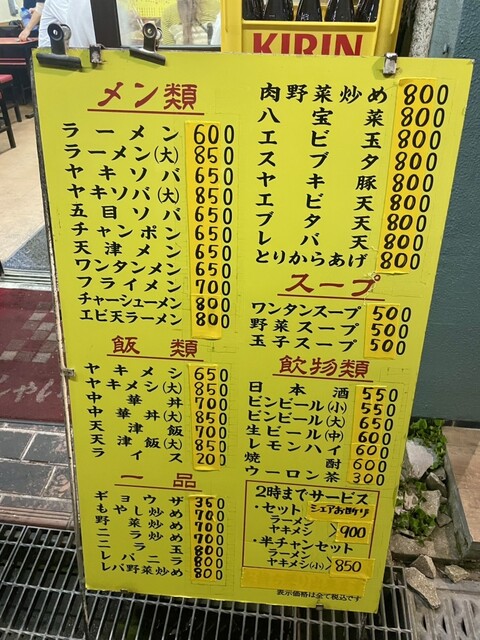 KIRIN
メン類
ラーメン 600
ラーメン(大) 850
ヤキソバ 650
ヤキソバ(大) 850
五目ソバ 650
チャンポン 650
天津メン 650
ワンタンメン 650
フライメン 700
チャーシューメン 800
エビ天ラーメン 800
飯類
ヤキメシ 650
ヤキメシ(大) 850
中華丼 700
中華丼(大) 850
天津飯 700
天津飯(大) 850
ライス 200
一品
ギョウザ 350
もやし炒め 700
野菜炒め 700
ニラ炒め 700
ニラ玉 800
レバニラ 800
レバ野菜炒め 800
肉野菜炒め 800
八宝菜 800
エビ玉 800
スブタ 800
ヤキ豚 800
エビ天 800
ブタ天 800
レバ天 800
とりからあげ 800
スープ
ワンタンスープ 500
野菜スープ 500
玉子スープ 500
飲物類
日本酒 550
ビンビール(小) 550
ビンビール(大) 650
生ビール(中) 600
レモンハイ 600
焼酎 600
ウーロン茶 300
2時までサービス
・セット シェアお断り
ラーメン
ヤキメシ 900
・半チャンセット
ラーメン
ヤキメシ(小) 850
表示価格は全て税込です